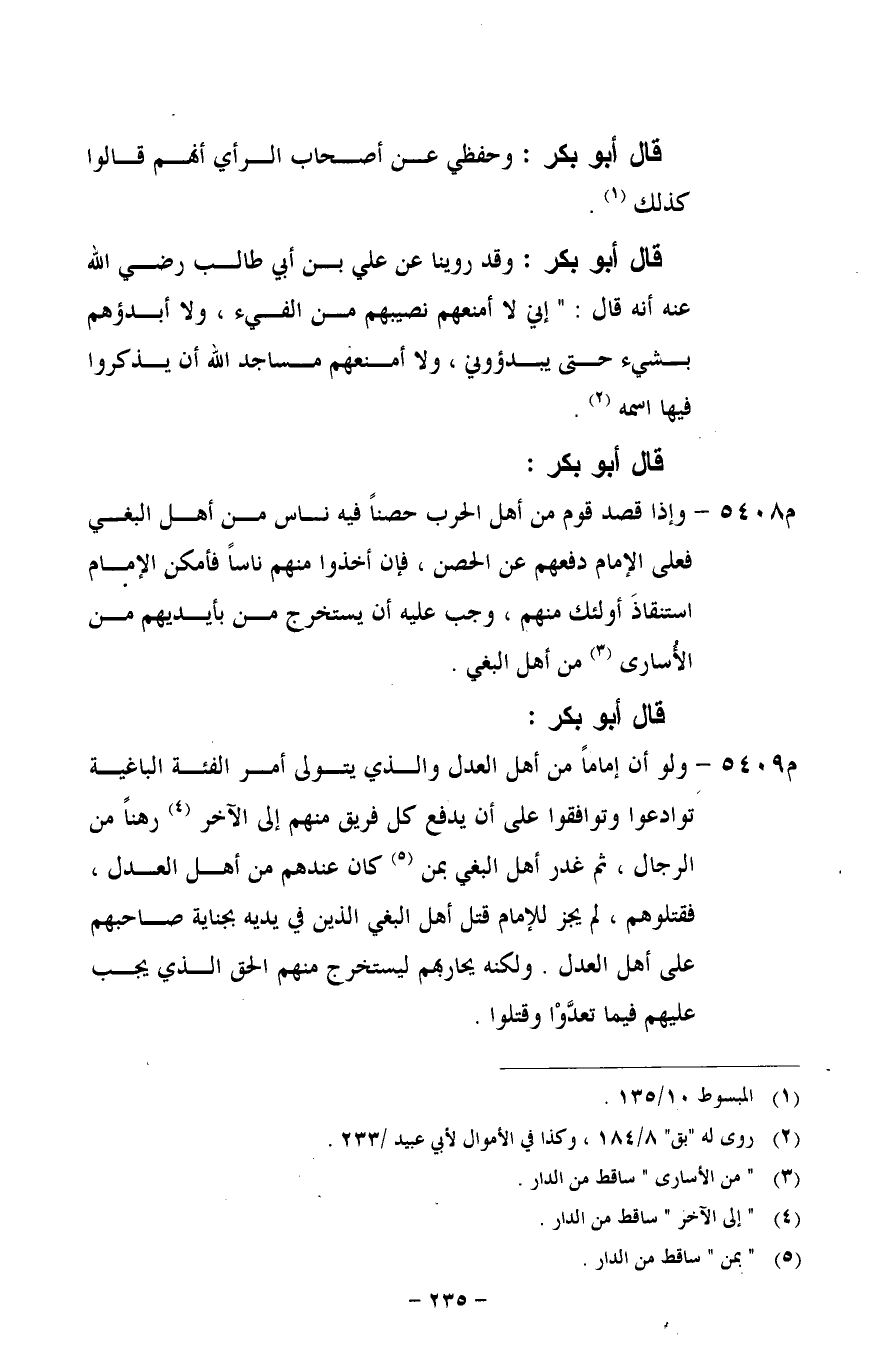 قال أبو بكر : وحفظي عن أصحاب الرأي أنهم قالوا
كذلك (١) .
قال أبو بكر : وقد روينا عن علي بن أبي طالب رضي الله
عنه أنه قال : " إني لا أمنعهم نصيبهم من الفيء ، ولا أبدؤهم
بشيء حتى يبدؤوني ، ولا أمنعهم مساجد الله أن يذكروا
فيها اسمه (٢) .
قال أبو بكر :
م٥٤٠٨ – وإذا قصد قوم من أهل الحرب حصناً فيه ناس من أهل البغي
فعلى الإمام دفعهم عن الحصن ، فإن أخذوا منهم ناساً فأمكن الإمام
استنقاذَ أولئك منهم ، وجب عليه أن يستخرج من بأيديهم من
الأُسارى (٣) من أهل البغي .
قال أبو بكر :
م٥٤٠٩ – ولو أن إماماً من أهل العدل والذي يتولى أمر الفئة الباغية
توادعوا وتوافقوا على أن يدفع كل فريق منهم إلى الآخر (٤) رهناً من
الرجال ، ثم غدر أهل البغي بمن (٥) كان عندهم من أهل العدل ،
فقتلوهم ، لم يجز للإمام قتل أهل البغي الذين في يديه بجناية صاحبهم
على أهل العدل . ولكنه يحاربهم ليستخرج منهم الحق الذي يجب
عليهم فيما تعدَّوْا وقتلوا .
(١) المبسوط ١٣٥/١٠ .
(٢) روى له "بق" ١٨٤/٨ ، وكذا في الأموال لأبي عبيد /٢٣٣ .
(٣) " من الأسارى " ساقط من الدار .
(٤) " إلى الآخر " ساقط من الدار .
(٥) " بمن " ساقط من الدار .
– ٢٣٥ –